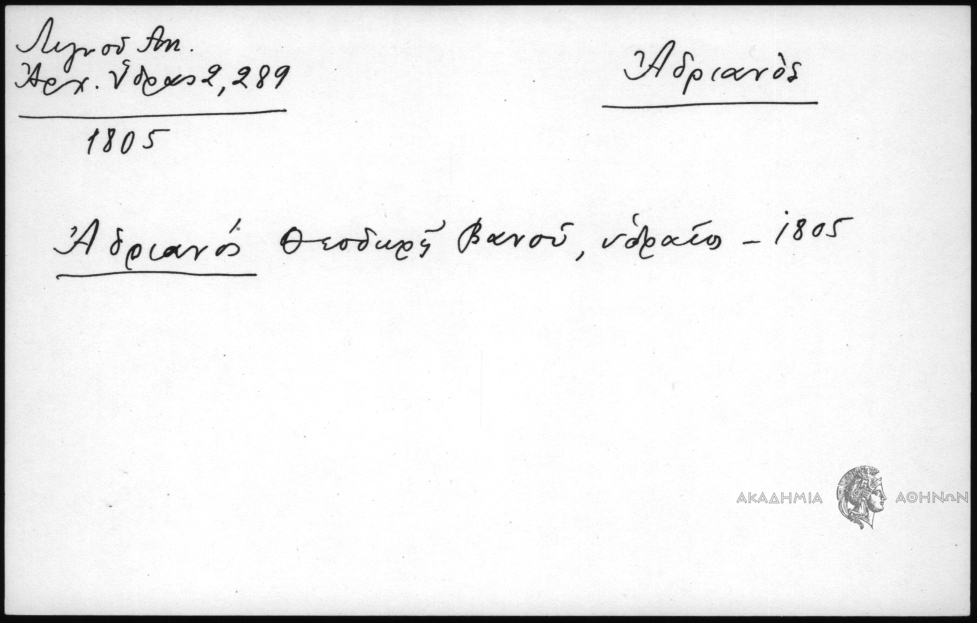 Λιγνού Αντ.
Ἀρχ. Ὕδρας 2, 289
1805
Ἀδριανός
Ἀδριανός Θεοδωρῆ Βανοῦ, ὑδραῖος – 1805
ΑΚΑΔΗΜΙΑ ΑΘΗΝΩΝ